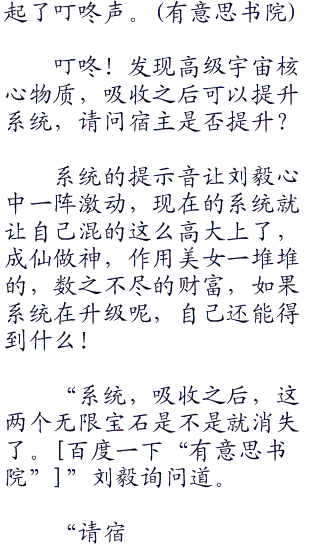 起了叮咚声。(有意思书院)
叮咚！发现高级宇宙核
心物质，吸收之后可以提升
系统，请问宿主是否提升？
系统的提示音让刘毅心
中一阵激动，现在的系统就
让自己混的这么高大上了，
成仙做神，作用美女一堆堆
的，数之不尽的财富，如果
系统在升级呢，自己还能得
到什么！
“系统，吸收之后，这
两个无限宝石是不是就消失
了。[百度一下“有意思书
院”]”刘毅询问道。
“请宿